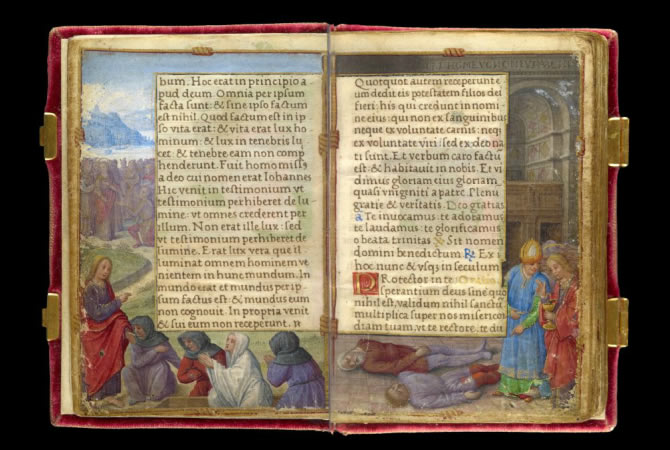 bum. Hoc erat in principio a
pud deum. Omnia per ipsum
facta sunt: & sine ipso factum
est nihil. Quod factum est in ip
so vita erat: & vita erat lux ho
minum: & lux in tenebris lu
cet: & tenebre eam non comp
henderunt. Fuit homo missus
a deo cui nomen erat Iohannes
Hic venit in testimonium vt
testimonium perhiberet de lu
mine. vt omnes crederent per
illum. Non erat ille lux: sed
vt testimonium perhiberet de
lumine. Erat lux vera que il
luminat omnem hominem ve
nientem in hunc mundum. In
mundo erat et mundus per ip
sum factus est: & mundus eum
non cognouit. In propria venit
& sui eum non receperunt.
Quotquot autem receperunt e
um dedit eis potestatem filios dei
fieri: his qui credunt in nomi
ne eius: qui non ex sanguinibus
neque ex voluntate carnis: neq
ex voluntate viri: sed ex deo na
ti sunt. Et verbum caro factu
est: & habitauit in nobis. Et vi
dimus gloriam eius gloriam
quasi vnigeniti a patre. Plenu
gratie & veritatis. Deo gratias
Te inuocamus: te adoramus
te laudamus: te glorificamus
o beata trinitas. Sit nomen
domini benedictum. R Ex
hoc nunc & vsq in seculum
Protector in te
sperantium deus sine quo
nihil est validum nihil sanctu
multiplica super nos misericor
diam tuam, vt te rectore. te du